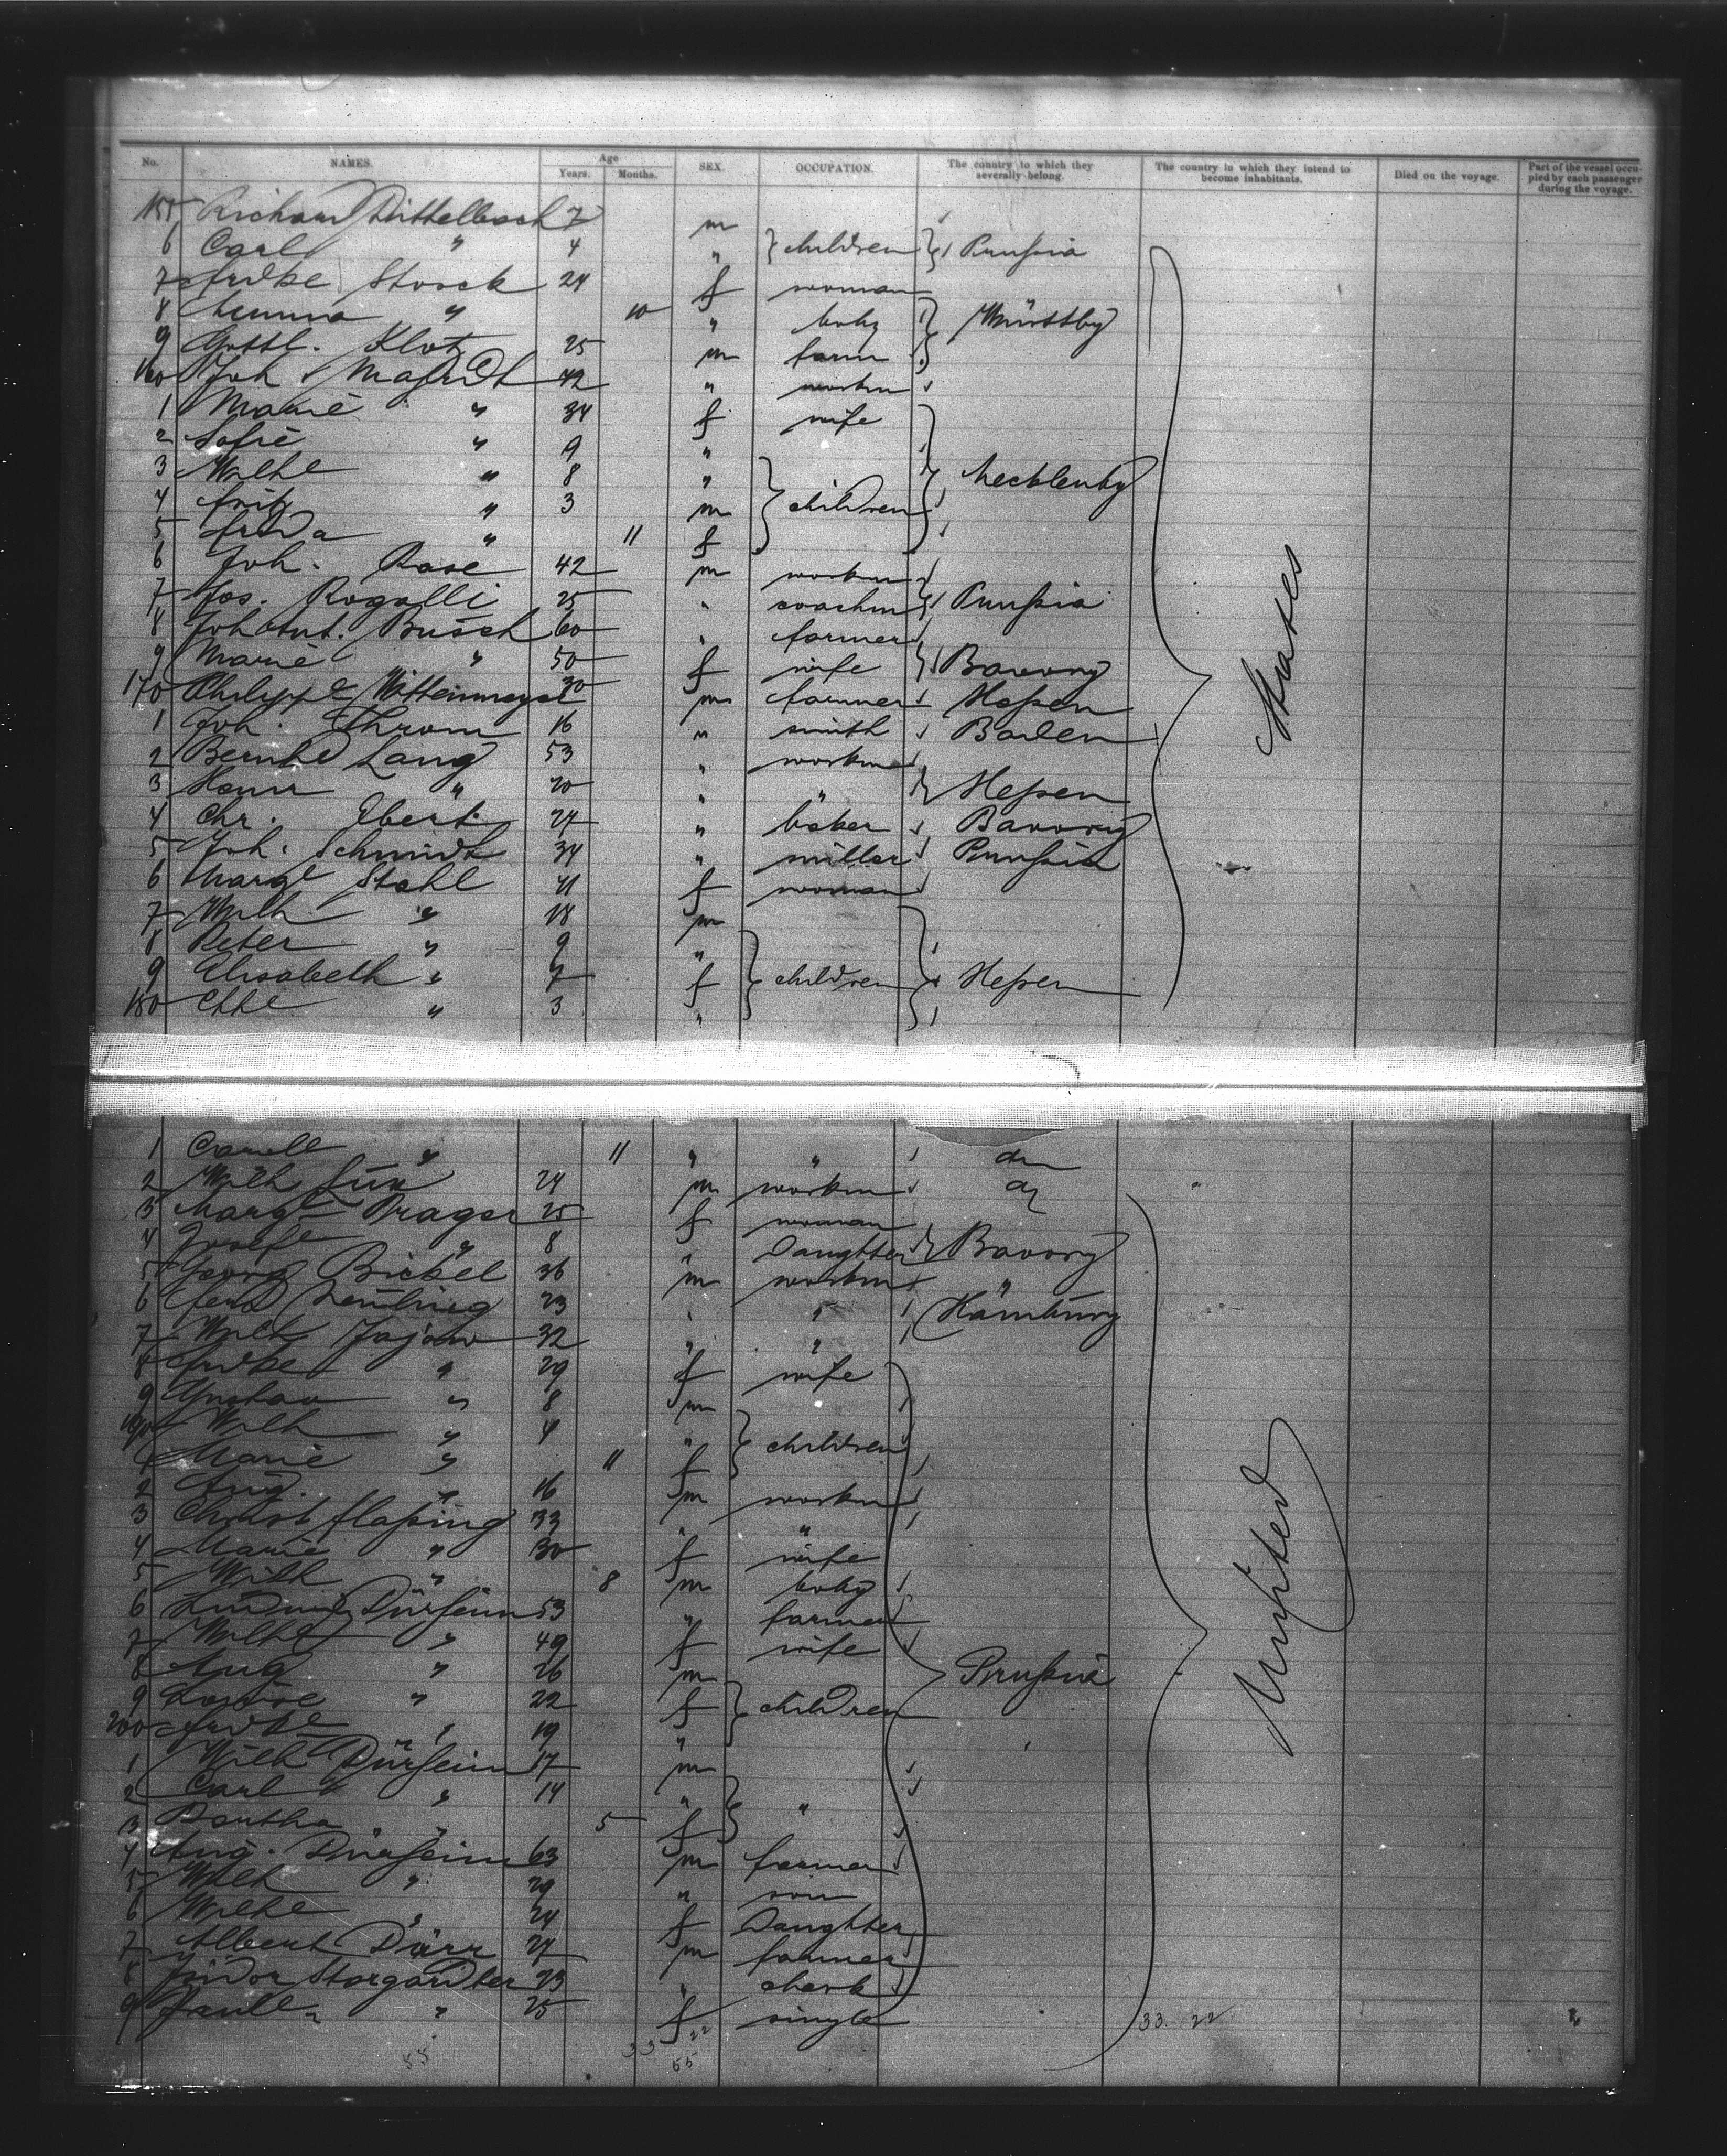 No. NAMES. Age Years. Months. SEX. OCCUPATION. The country to which they severally belong. The country in which they intend to become inhabitants. Died on the voyage. Part of the vessel occupied by each passenger during the voyage.
155 Richard Dittelbach 7 m
6 Carl " 4 " children Prussia
7 Fredke Storck 24 f woman
8 Emma " 10 " baby Württbg
9 Gottl. Klotz 25 m farm
160 Joh 42 " workm
1 Marie " 34 f wife
2 Sofie " 9 "
3 Wilhe " 8 " Mecklenbg
4 Fritz " 3 m children
5 Frida " 11 f
6 Joh. Rose 42 m workm
7 Jos. Rogalli 25 " coachm Prussia
8 Joh Ant. Busch 60 " farmer
9 Marie " 50 f wife Bavary
170 Philipp Wittenmeyer 30 m farmer Hessen
1 Joh. Throm 16 " smith Baden
2 Bernhd Lang 53 " workm
3 " 20 " " Hessen
4 Chr. Ebert 27 " baker Bavary
5 Joh. Schmidt 34 " miller Prussia
6 Margt Stahl 41 f woman
7 Wilh " 18 m
8 Peter " 9 "
9 Elisabeth " 7 f children Hessen
180 " 3 "
States
1 " 11 " "
2 Wilh 24 m workm
3 Margt Prager 25 f woman
4 " 8 " Daughter Bavary
5 Georg Bickel 36 m workm "
6 23 " " Hamburg
7 Wilh Jajow 32 " "
8 Fredke " 29 f wife
9 Gustav " 8 m
190 Wilh " 4 " children
1 Marie " 11 f
2 Aug. " 16 m workm
3 Christ Flassing 33 " "
4 Marie " 30 f wife
5 Wilh " 8 m baby
6 Ludwig Dürsein 53 " farmer
7 Wilhe " 49 f wife
8 Aug " 26 m Prussia
9 Louise " 22 f children
200 Fredke " 19 "
1 Wilh Dürsein 17 m
2 Carl " 14 " "
3 Bertha " 5 f
4 Aug. Dürsein 63 m farmer
5 Wilh " 29 " son
6 Wilhe " 24 f Daughter
7 Albert Dürr 27 m farmer
8 Isidor Stargardter 23 " clerk
9 " 25 f single
United
33. 22
55 33 22
55